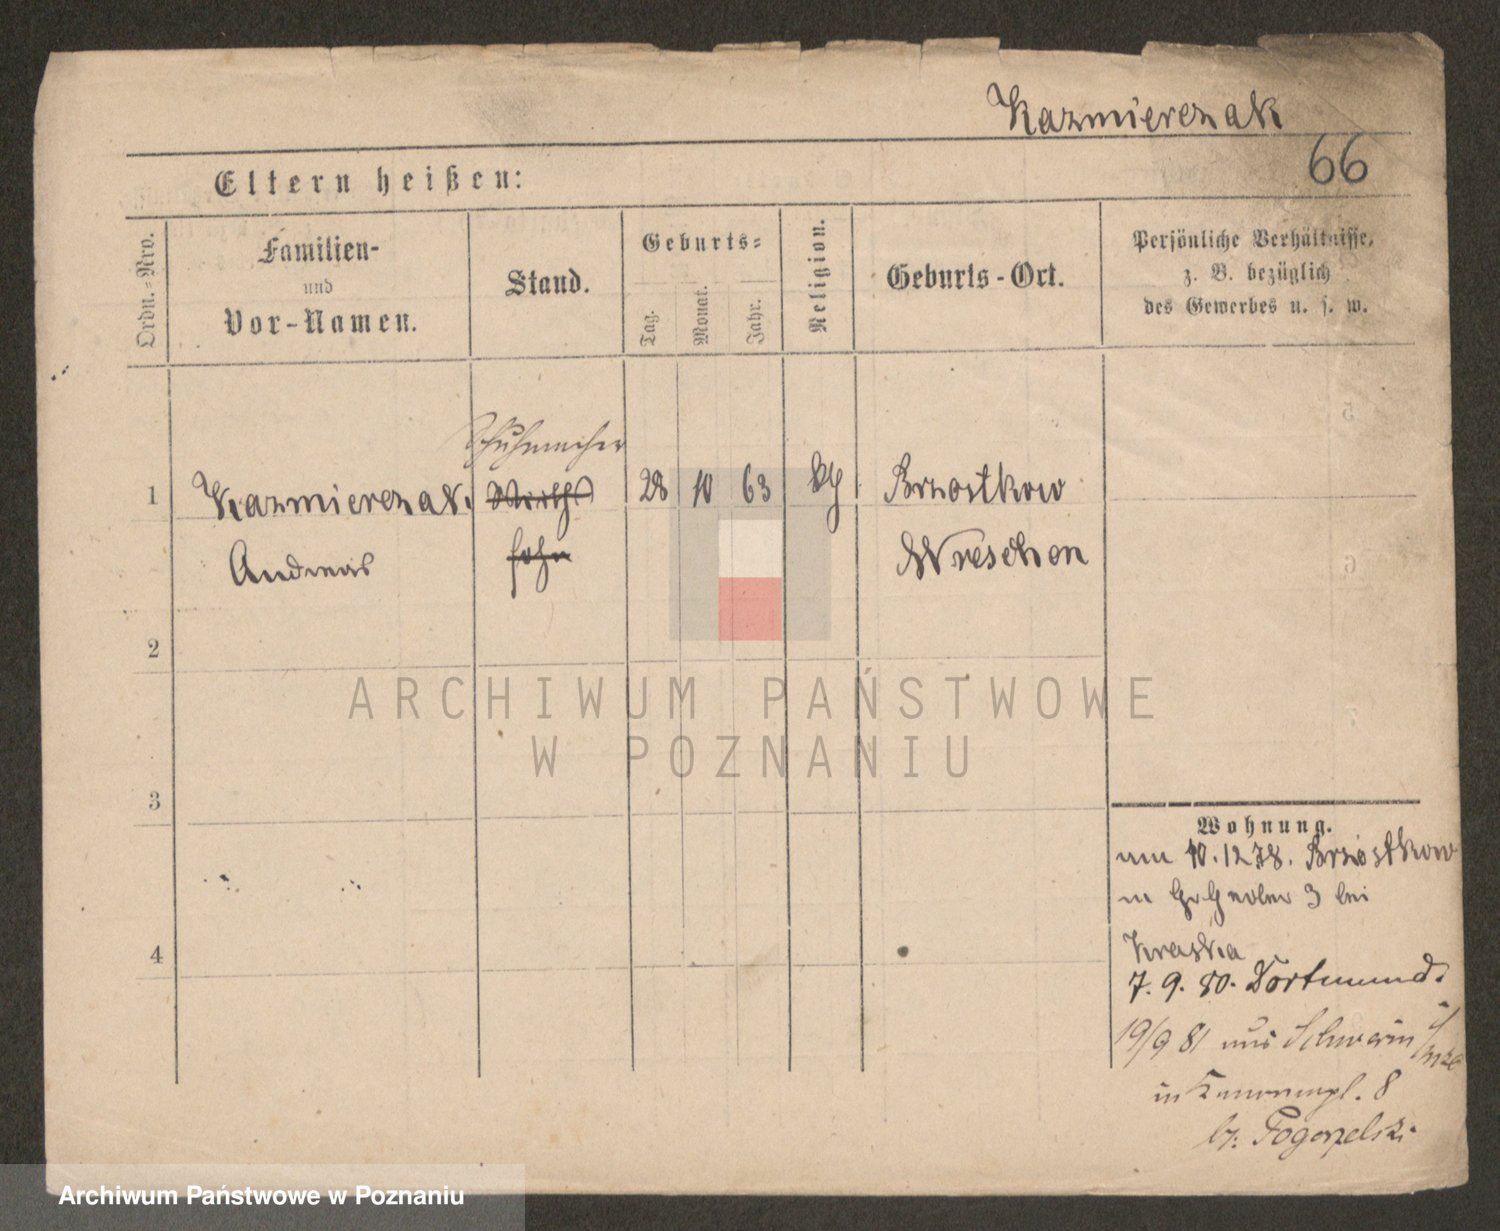 Kazmierczak
66
Eltern heißen:
Ordn.-Nro.
Familien-
und
Vor-Namen.
Stand.
Geburts-
Tag.
Monat.
Jahr.
Religion.
Geburts-Ort.
Persönliche Verhältnisse,
z. B. bezüglich
des Gewerbes u. s. w.
Schuhmacher
1 Kazmierczak. Wirths 28 10 63 kth Brzostkow
Andreas sohn Wreschen
2
ARCHIWUM PAŃSTWOWE
W POZNANIU
3
4
Wohnung.
am 10.12.78. Brzostkow
3 bei
Kraska
7. 9. 80. Dortmund.
19/9 81 aus Schwerin
in Kanonenpl. 8
b. Pogorzelski
Archiwum Państwowe w Poznaniu